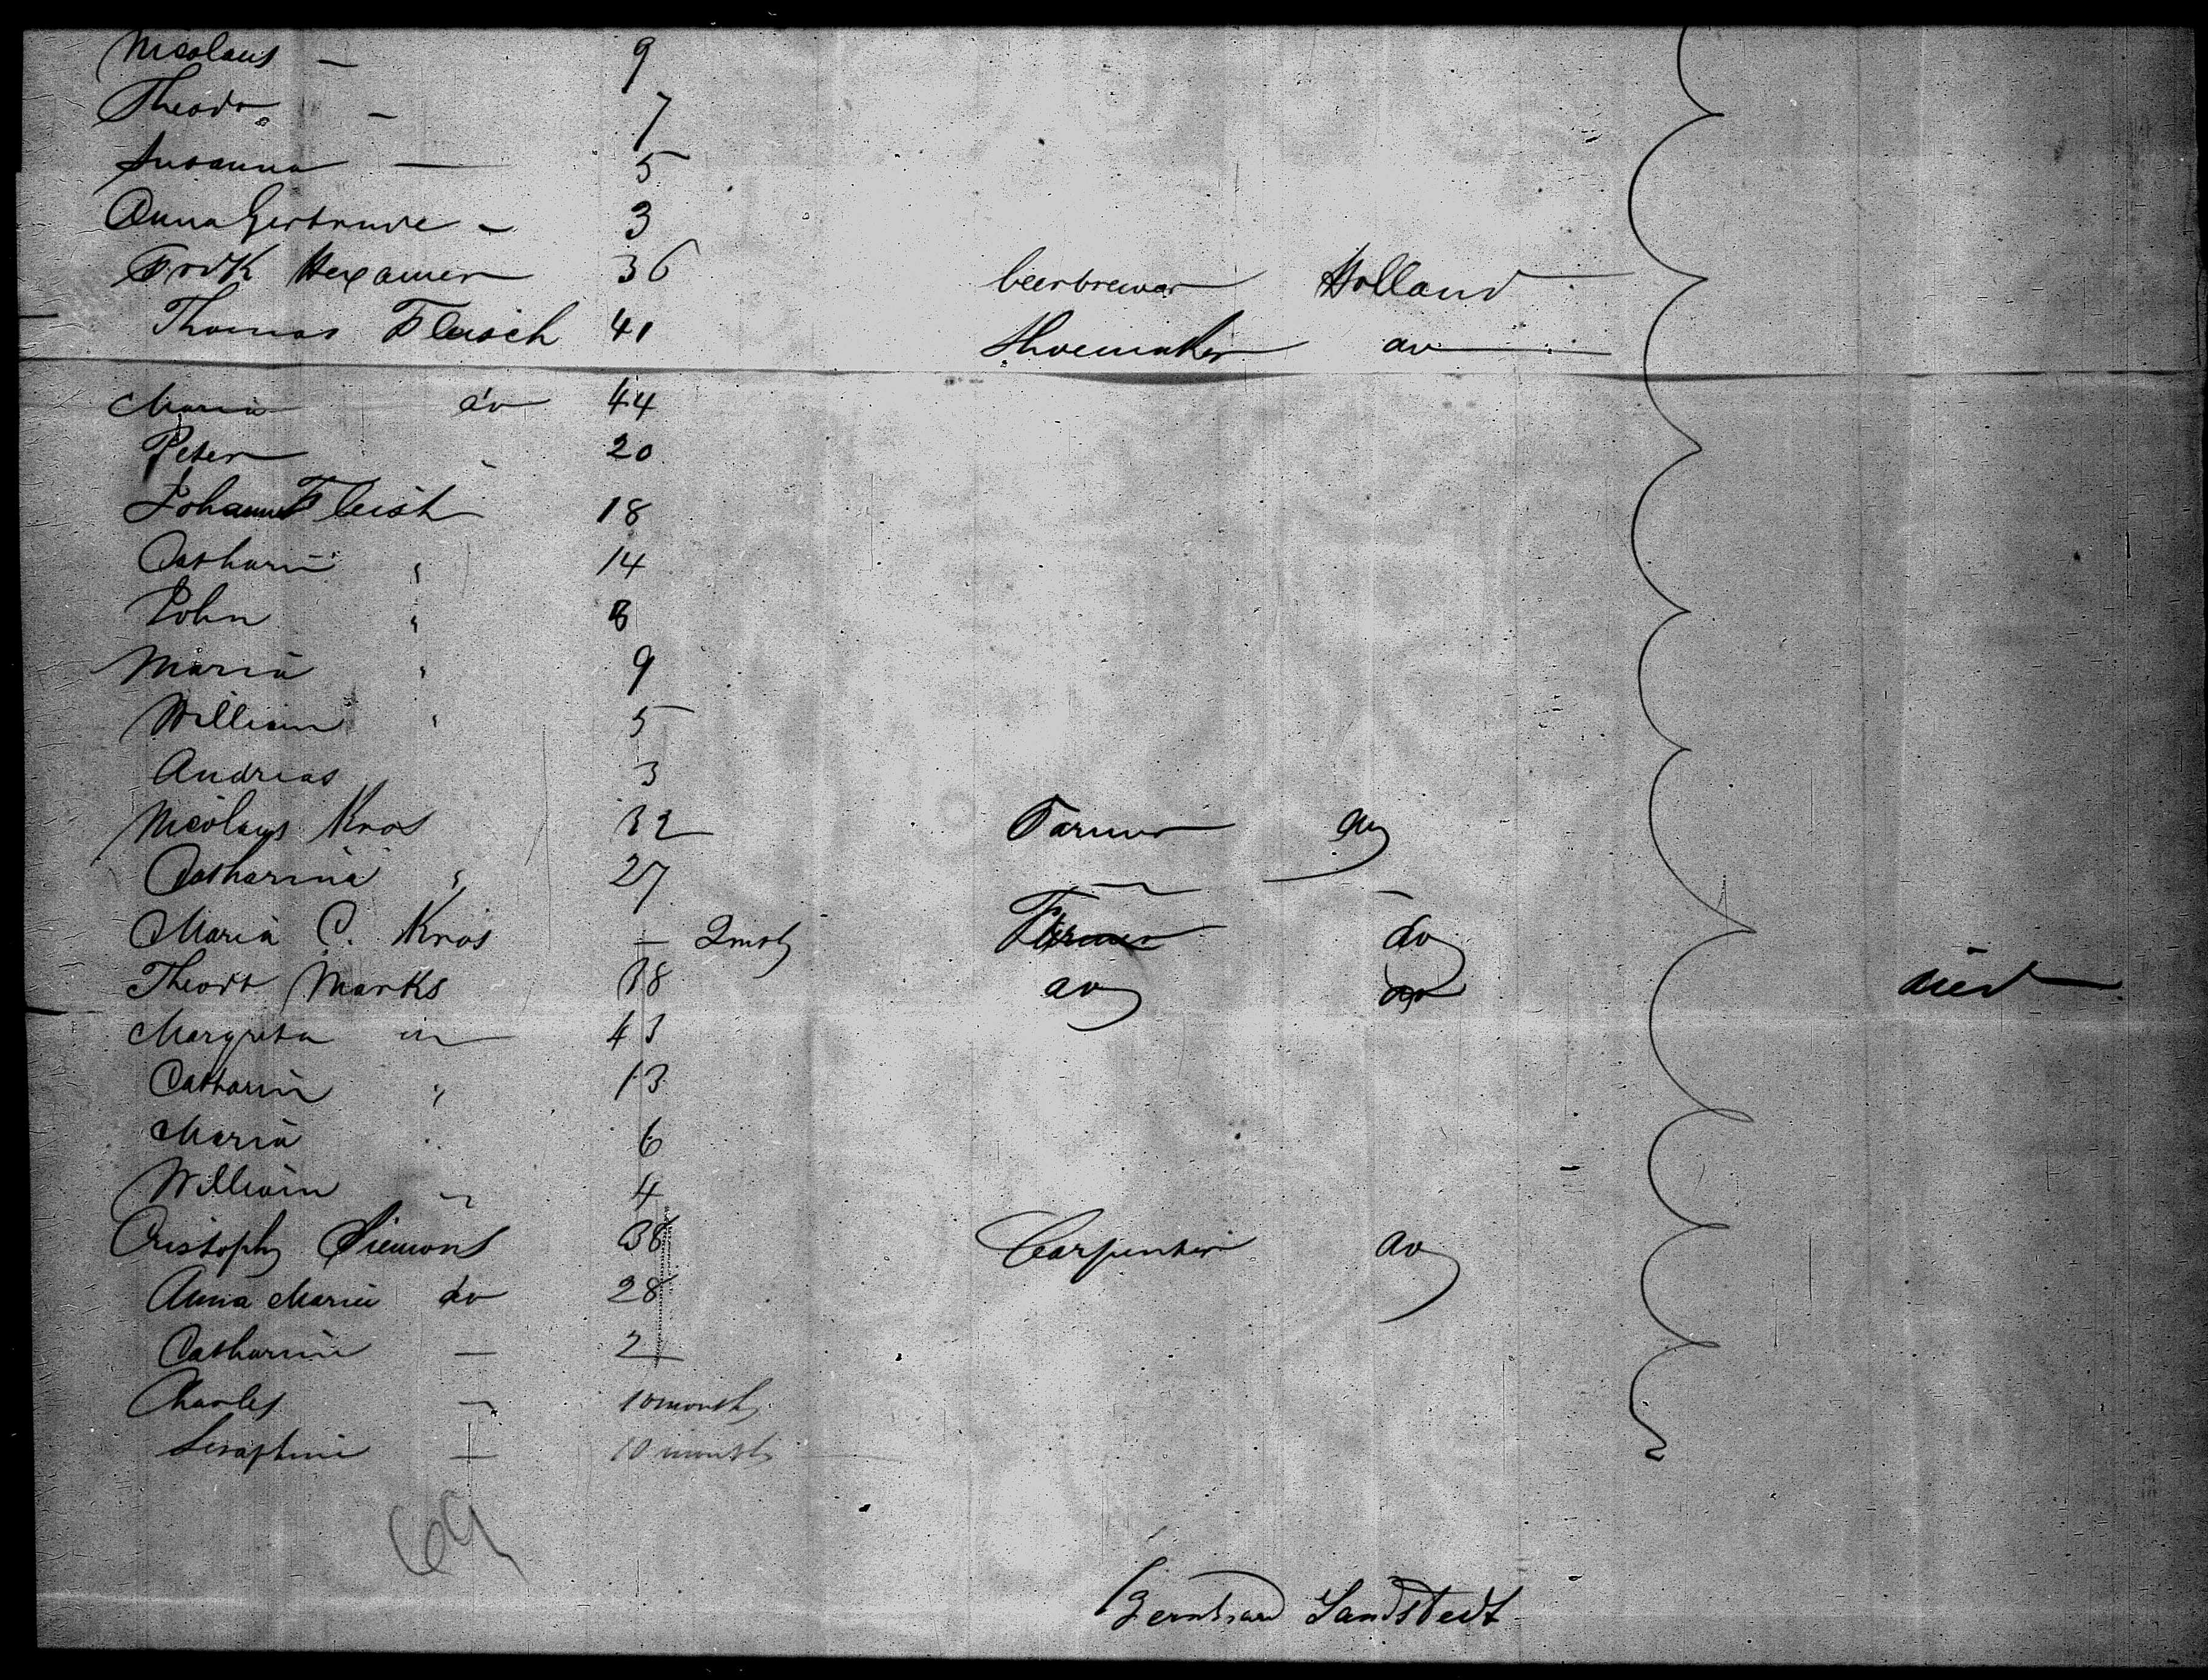 Nicolaus — 9
Theodr. — 7
Susanna — 5
Anna Gertrude — 3
Frdk Hexamer 36 beerbrewer Holland
Thomas Fleisch 41 Shoemaker do
Maria do 44
Peter 20
Johann Fleish 18
Catharin " 14
John " 8
Maria " 9
William " 5
Andreas 3
Nicolaus Kros 32 Farmer do
Catharina " 27
Maria C. Kros — 2 mots Farmer do
Theodr Marks 38 do do died
Margreta do 43
Catharin " 13
Maria 6
William " 4
Cristoph Siemons 38 Carpenter do
Anna Maria do 28
Catharine — 2
Charles — 10 months
Seraphine — 10 months
69
Bernhard Sandstedt